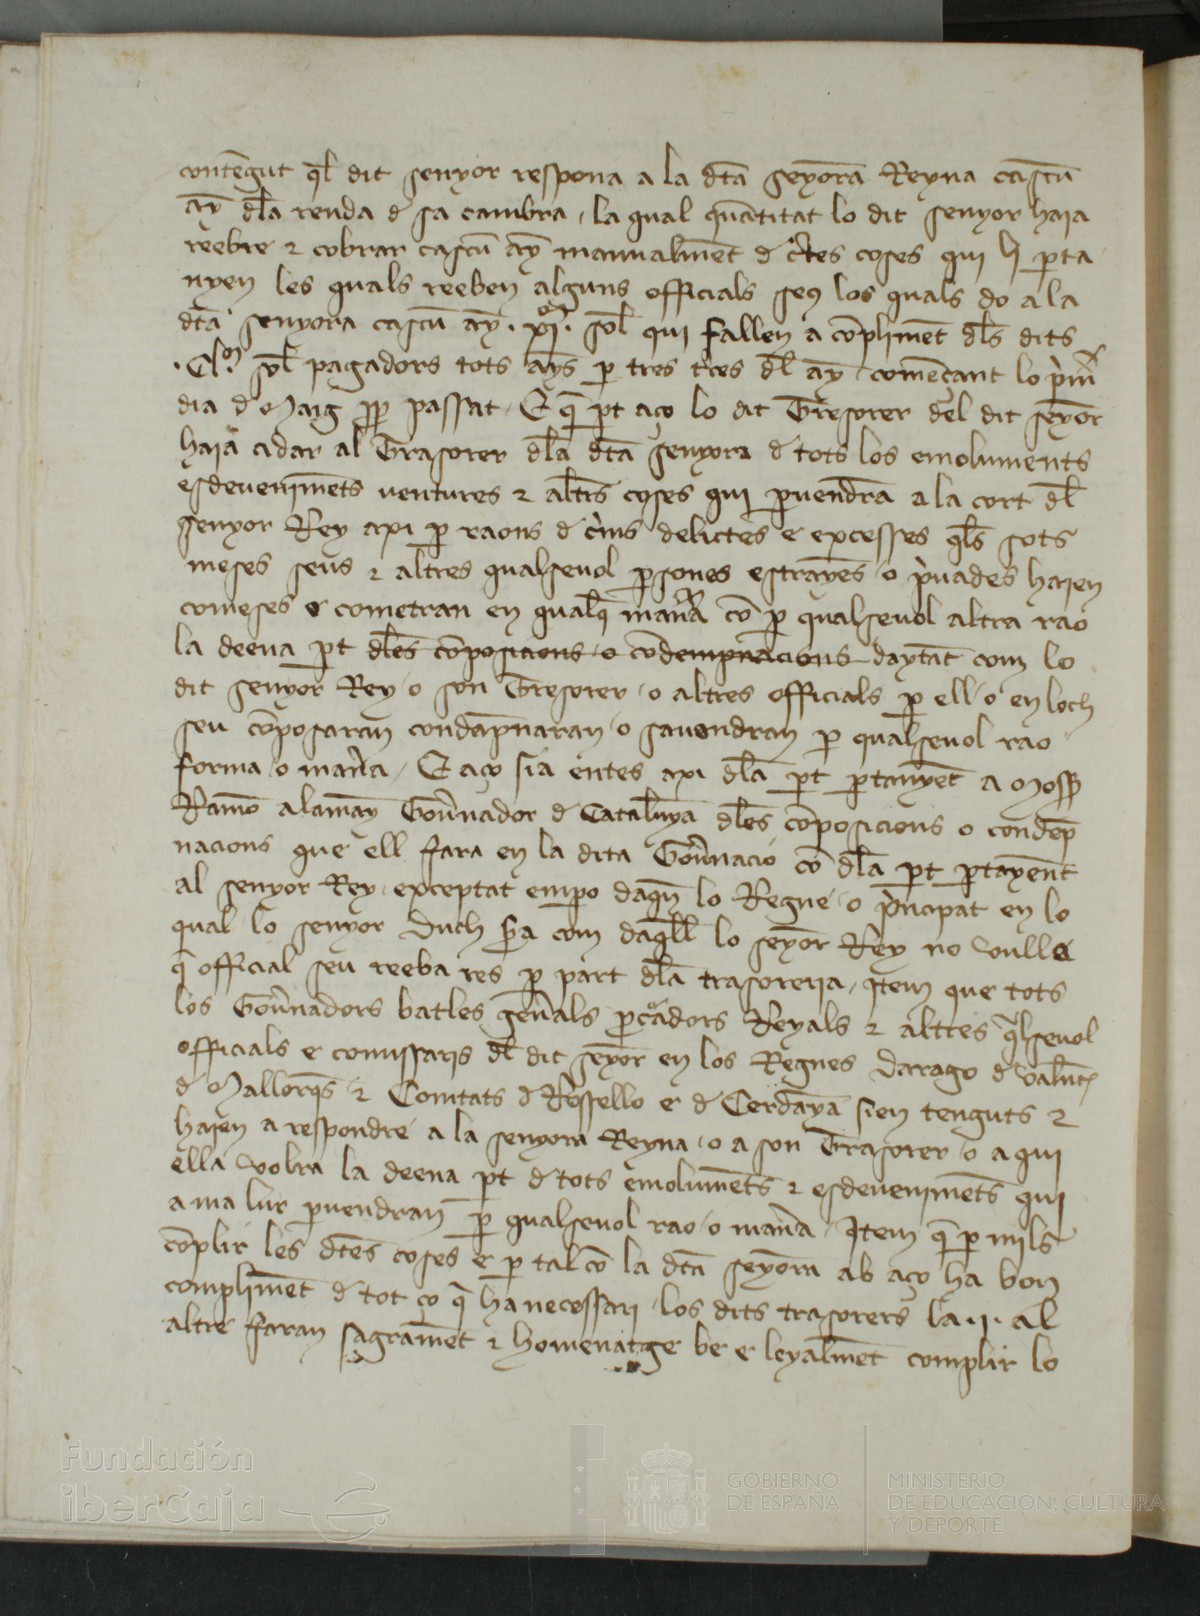 contēgut ql̄ dit senyor respona a la dt̄a seyōra Reyna cascū
aȳ dl̄a renda d̄ sa cambra / la qual quātitat lo dit senyor haia
reebre ⁊ cobrar cascū aȳ manualmēt d̄ c̄tes coses qui li ꝑta
nyen les quals reeben alguns officials seꝯ los quals do a la
dt̄a senyora cascū aȳ · xjͫ · sol̄ qui fallen a cōplimēt dl̄s dits
· Clͫ · sol̄ pagadors tots aȳs ꝑ tres t̄ces dl̄ aȳ / comēcant lo p̄m̄
dia d̄ Maig ꝓꝑ passat / E q̄ ꝑt aço lo dit Tresorer del dit seyōr
haia a dar al Trasorer dl̄a dt̄a senyora d̄ tots los emoluments
esdevenimēts ventures ⁊ altr̄s coses qui ꝑvendrā a la cort dl̄
senyor Rey axi ꝑ raons d̄ c̄ms delictes e excesses ql̄s sots
meses seus ⁊ altres qualsevol ꝑsones estrayēs / o p̄vades haien
comeses e cometran en qualqꝫ man̄a cō ꝑ qualsevol altra rao
la deena ꝑt dl̄es cōposicions / o condempnacions daytāt com lo
dit senyor Rey / o son Tresorer / o altres officials ꝑ ell / o en loch
seu cōposaran condāpnaran / o savendran ꝑ qualsevol rao
forma / o man̄a / E aço sia entes axi dl̄a ꝑt ꝑtanyēt a Mosꝑ
Ramō alamāy Gov̄nador d̄ Cataluȳa dl̄es cōposicions o condēp
nacions que ell fara en la dita Gov̄nacio cō dl̄a ꝑt ꝑtayēnt
al senyor Rey / exceptat empo daqn̄ lo Regne / o p̄ncipat en lo
qual lo senyor Duch s̄a com daq̄ll lo seyōr Rey no vulla
q̄ official seu reeba res ꝑ part dl̄a trasoreria / Item que tots
los Gov̄nadors batles gen̄als ꝓcᵃdors Reyals ⁊ altres qᵃlsevol
officials e comissaris dl̄ dit seyōr en los Regnes Darago d̄ valn̄cꝫ
d̄ Mallorqs̄ ⁊ Comtats d̄ Rossello e d̄ Cerdāya sien tenguts ⁊
haien a respondre a la senyora Reyna / o a son Trasorer / o a qui
ella volra la deena ꝑt d̄ tots emolumēts ⁊ esdevenimēts qui
a ma lur ꝑvendran ꝑ qualsevol rao / o man̄a / Item q̄ ꝑ mils
cōplir les dt̄es coses e ꝑ tal cō la dt̄a seyōra ab aço ha bon
complimēt d̄ tot ço q̄ ha necessari / los dits trasorers la · j · al
altre faran sagramēt ⁊ homenatge be e leyalmēt complir lo
Fundación
iberCaja
GOBIERNO
DE ESPAÑA
MINISTERIO
DE EDUCACIÓN, CULTURA
Y DEPORTE